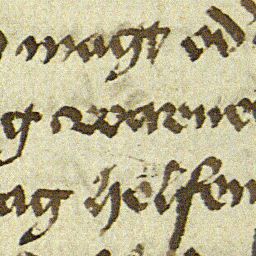 magt od
g warne
ag helfen